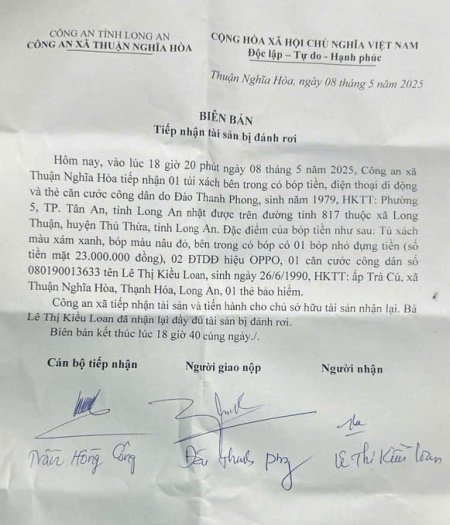 CÔNG AN TỈNH LONG AN
CÔNG AN XÃ THUẬN NGHĨA HÒA
CỘNG HÒA XÃ HỘI CHỦ NGHĨA VIỆT NAM
Độc lập – Tự do - Hạnh phúc
Thuận Nghĩa Hòa, ngày 08 tháng 5 năm 2025
BIÊN BẢN
Tiếp nhận tài sản bị đánh rơi
Hôm nay, vào lúc 18 giờ 20 phút ngày 08 tháng 5 năm 2025, Công an xã
Thuận Nghĩa Hòa tiếp nhận 01 túi xách bên trong có bóp tiền, điện thoại di động
và thẻ căn cước công dân do Đào Thanh Phong, sinh năm 1979, HKTT: Phường
5, TP. Tân An, tỉnh Long An nhặt được trên đường tỉnh 817 thuộc xã Long
Thuận, huyện Thủ Thừa, tỉnh Long An. Đặc điểm của bóp tiền như sau: Tú xách
màu xám xanh, bóp màu nâu đỏ, bên trong có bóp có 01 bóp nhỏ đựng tiền (số
tiền mặt 23.000.000 đồng), 02 ĐTDĐ hiệu OPPO, 01 căn cước công dân số
080190013633 tên Lê Thị Kiều Loan, sinh ngày 26/6/1990, HKTT: ấp Trà Cú, xã
Thuận Nghĩa Hòa, Thạnh Hóa, Long An, 01 thẻ bảo hiểm.
Công an xã tiếp nhận tài sản và tiến hành cho sở hữu tài sản nhận lại. Bà
Lê Thị Kiều Loan đã nhận lại đầy đủ tài sản bị đánh rơi.
Biên bản kết thúc lúc 18 giờ 40 cùng ngày./.
Cán bộ tiếp nhận Người giao nộp Người nhận
Trần Hồng Công Đào Thanh Phong Lê Thị Kiều Loan